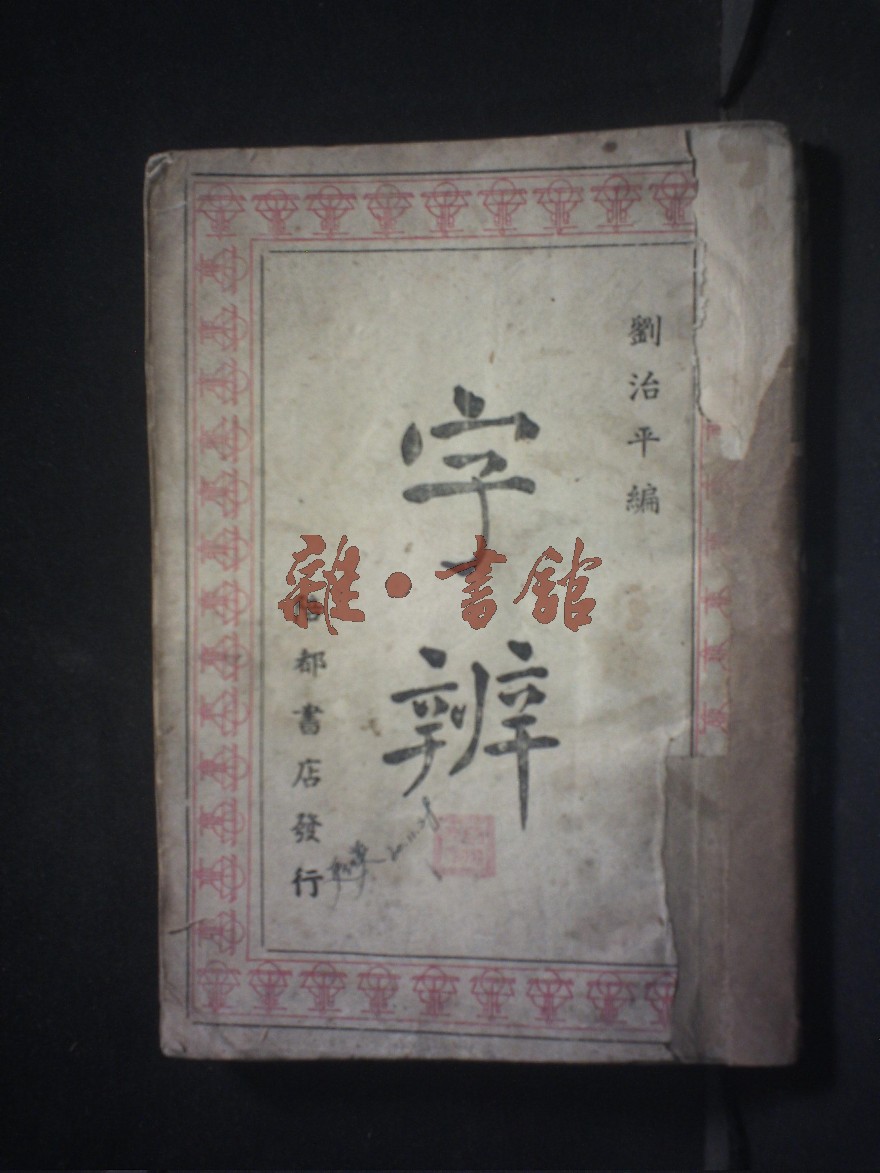 劉治平編
字辨
都書店發行
雜·書館